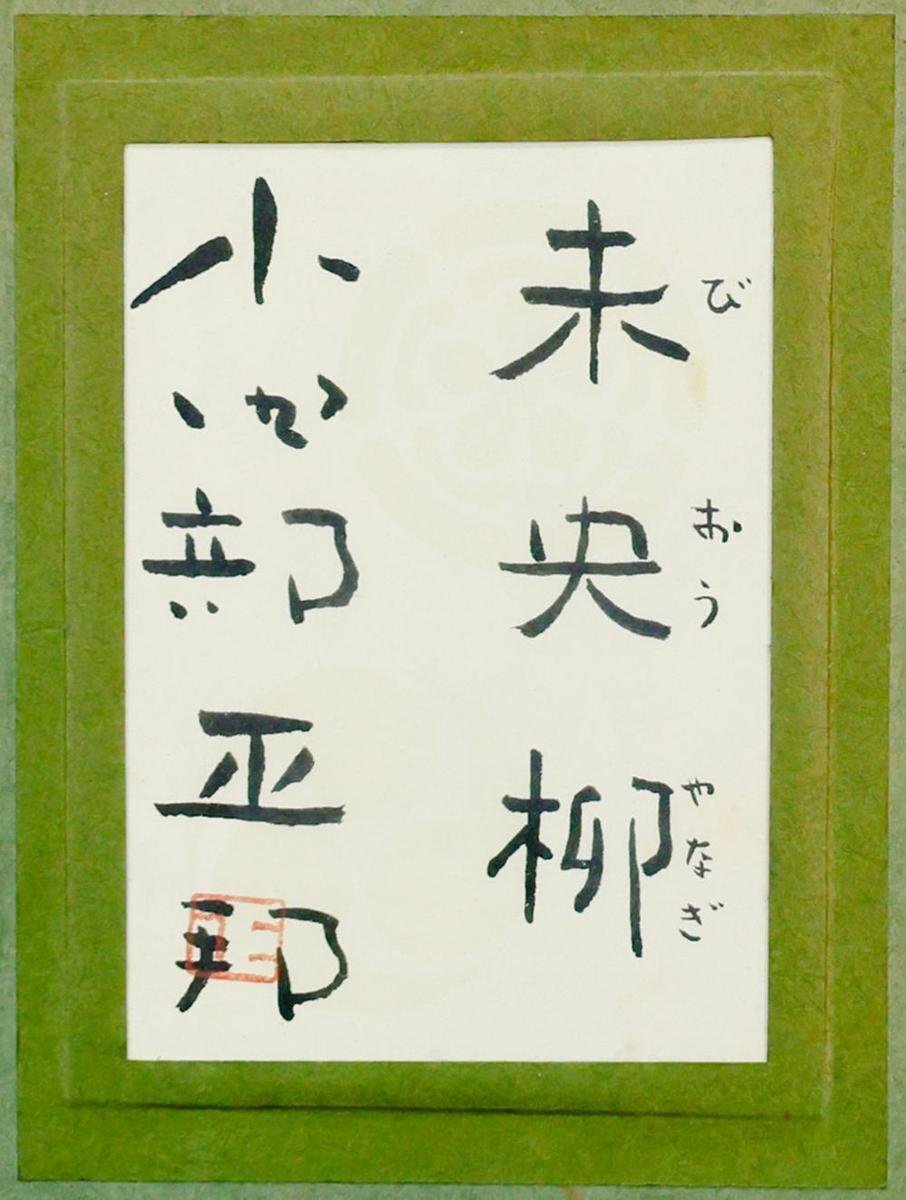 未央柳
びおうやなぎ
小 部正邦